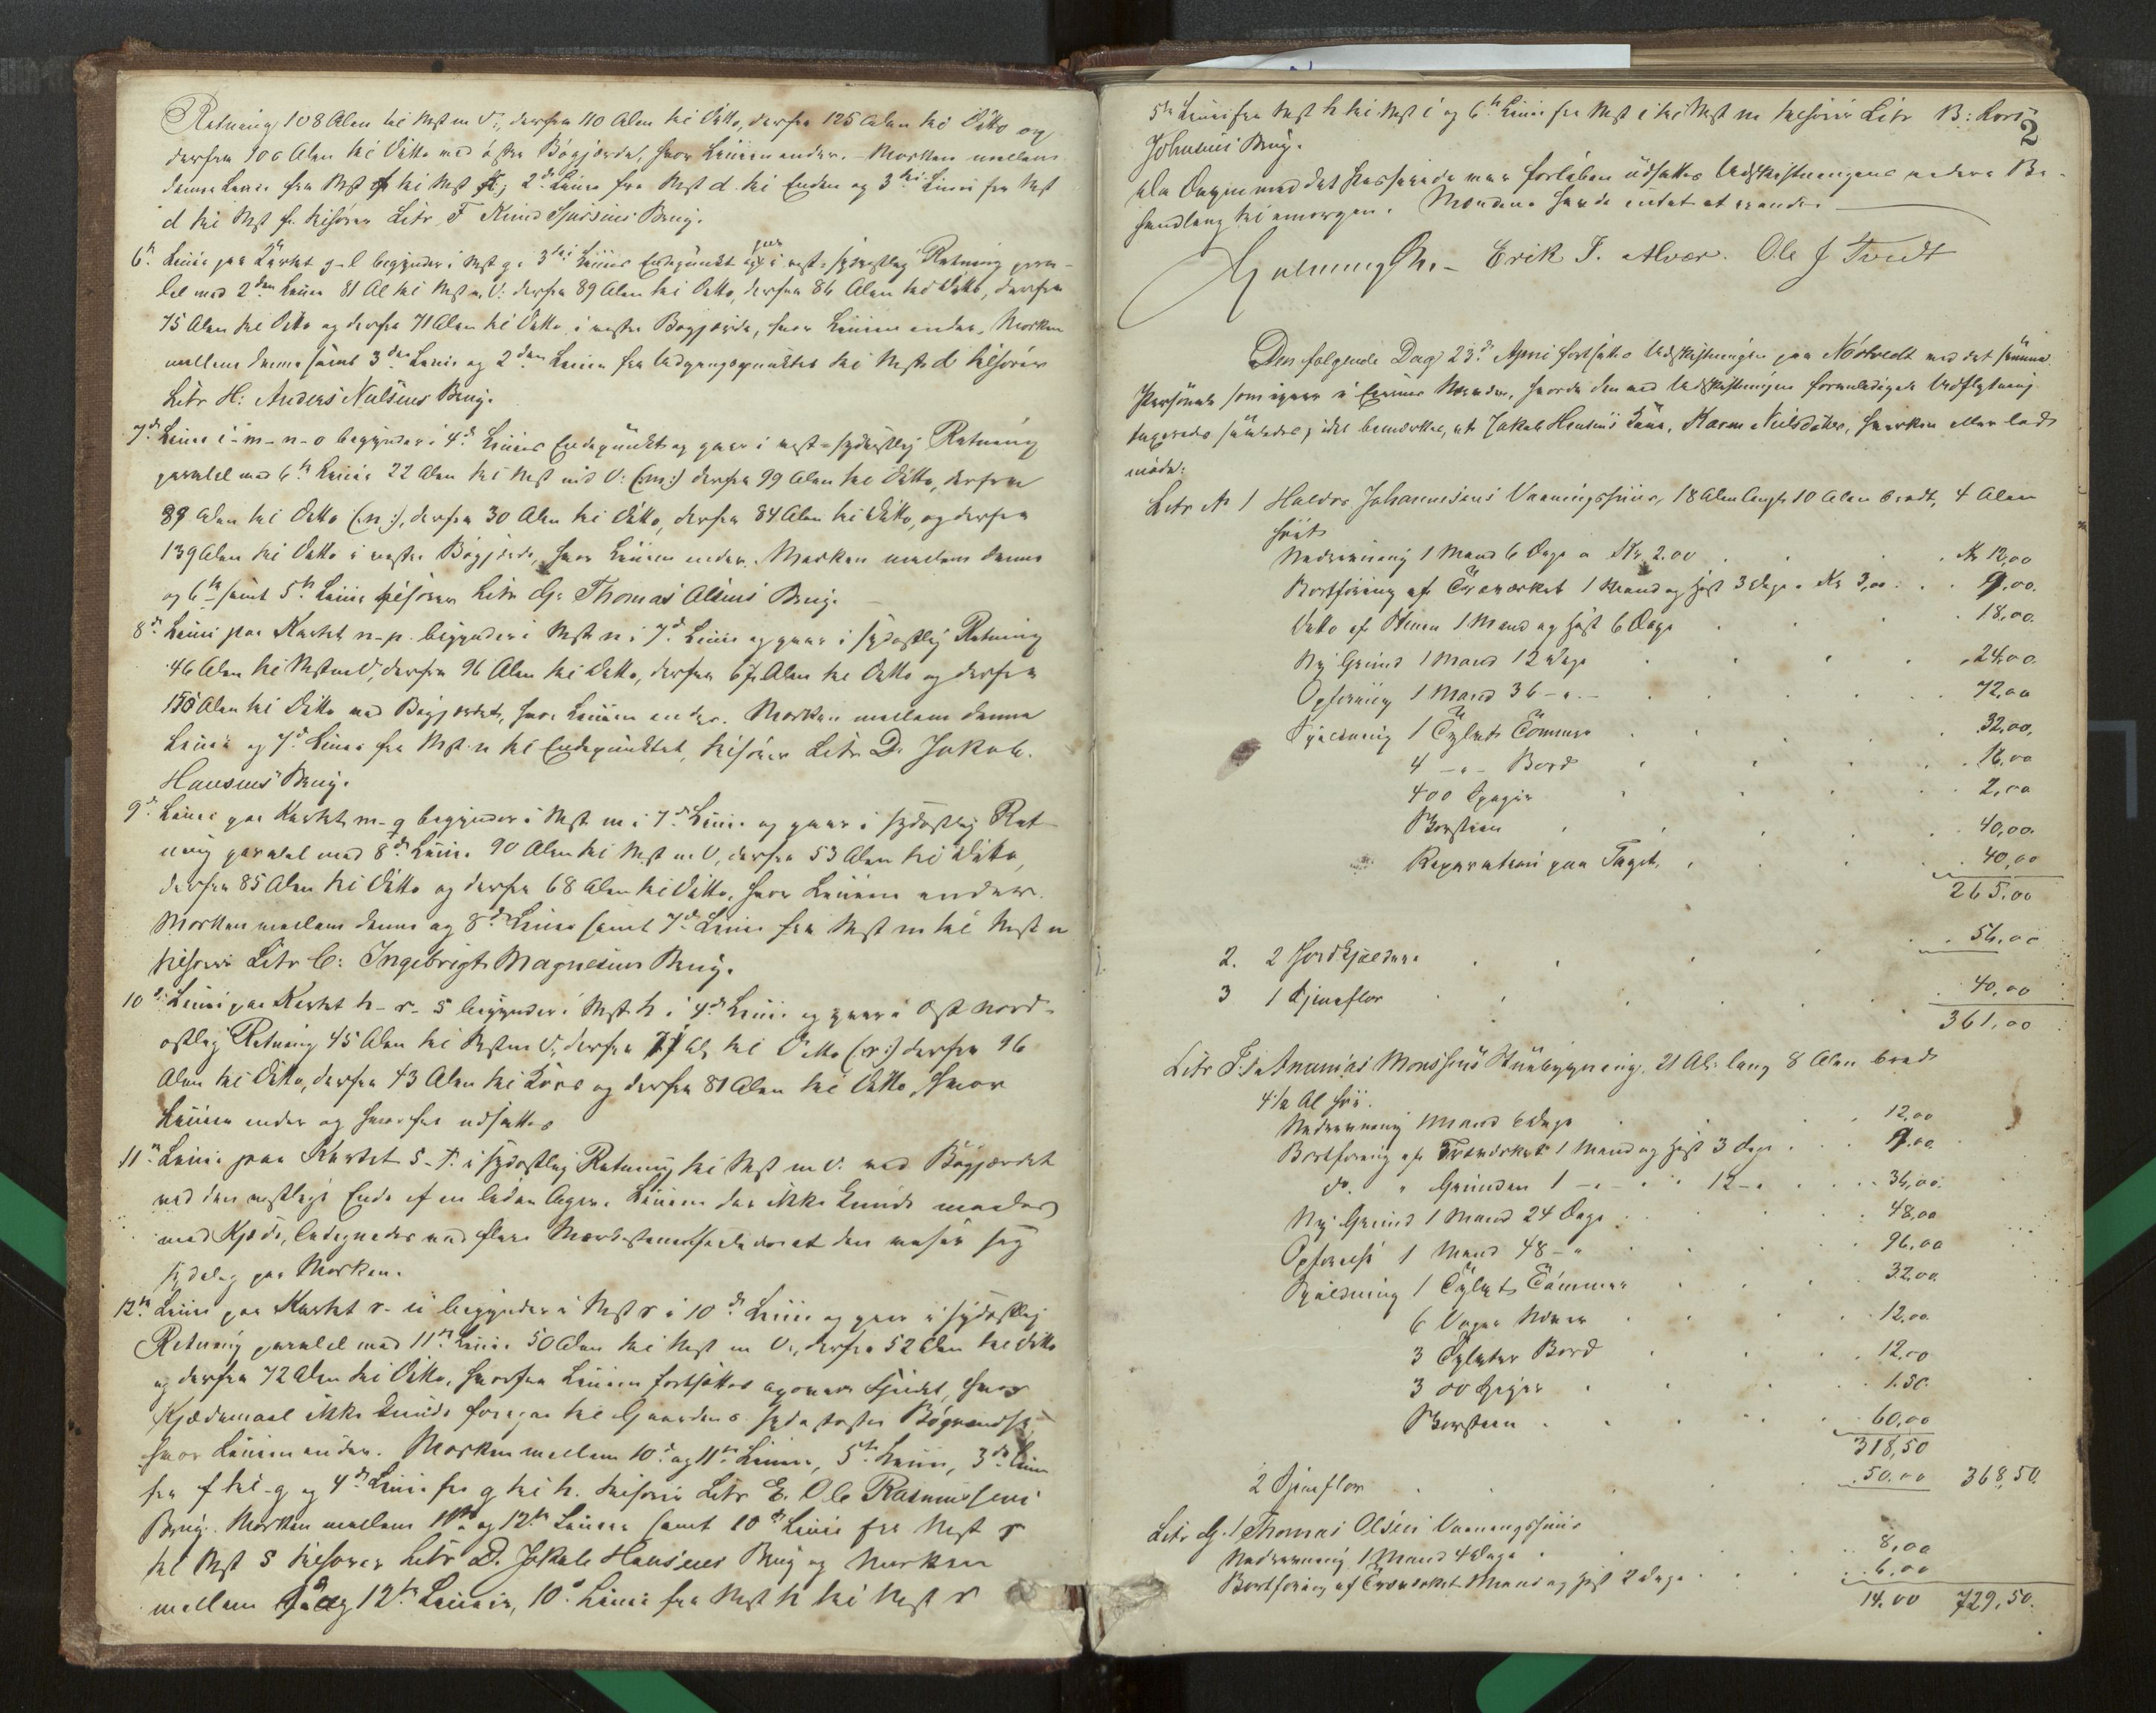 Retning 108 Alen til Mst m V., derfra 110 Alen til Ditto, derfra 125 Alen til Ditto og
derfra 100 Alen til Ditto ved østre Bøgjerde, hvor Linien ender. Marken mellem
denne Linie fra Mst f til Mst, 2den Linie fra Mst d til Enden og 3die Linie fra Mst
d til Mst f. tilhører Litr. F Knud Brug.
6te Linie paa Kartet g-l begynder i Mst g. 3die Linies Endepunkt og gaar i vest-sydvestlig Retning paral-
lel med 2den Linie 81 Al til Mst m. V. derfra 89 Alen til Ditto, derfra 86 Alen til Ditto, derfra
75 Alen til Ditto og derfra 71 Alen til Ditto i vestre Bøgjerde, hvor Linien ender. Marken
mellem denne samt 3die Linie og 2den Linie fra Udgangspunktet til Mst d tilhører
Litr H: Anders Nielsens Brug.
7de Linie i-m-n-o begynder i 4de Linies Endepunkt og gaar i vest-sydvestlig Retning
parallel med 6te Linie 22 Alen til Mst m V: (:m:) derfra 99 Alen til Ditto, derfra
89 Alen til Ditto (:n:), derfra 30 Alen til Ditto, derfra 84 Alen til Ditto, og derfra
139 Alen til Ditto i vestre Bøgjerde, hvor Linien ender. Marken mellem denne
og 6te samt 5te Linie tilhører Litr G. Thomas Olsens Brug.
8de Linie paa Kartet n-p. begynder i Mst n i 7de Linie og gaar i sydøstlig Retning
46 Alen til Mst m V, derfra 96 Alen til Ditto, derfra Alen til Ditto og derfra
Alen til Ditto ved Bøgjerdet, hvor Linien ender. Marken mellem denne
Linie og 7de Linie fra Mst n til Endepunktet, tilhører Litr D. Jakob
Hansens Brug.
9de Linie paa Kartet m-q begynder i Mst m i 7de Linie og gaar i sydøstlig Ret-
ning parallel med 8de Linie 90 Alen til Mst m V, derfra 53 Alen til Ditto,
derfra 85 Alen til Ditto og derfra 68 Alen til Ditto, hvor Linien ender.
Marken mellem denne og 8de Linie samt 7de Linie fra Mst m til Mst n
tilhører Litr C: Ingebrigt Magnesens Brug.
10de Linie paa Kartet h-r-s begynder i Mst h i 4de Linie og gaar i Øst nord-
østlig Retning 45 Alen til Mst m V, derfra 71 Al, til Ditto (:r:) derfra 96
Alen til Ditto, derfra 43 Alen til og derfra 81 Alen til Ditto, hvor
Linien ender og hvorfra udsættes
11te Linie paa Kartet s-t i sydøstlig Retning til Mst m V. ved Bøgjærdet
ved den vestlige Ende af en liden Ager. Linien der ikke kunde maales
med Kjæde, betegnedes ved flere Merkestene saaledes at den viser sig
tydelig paa Marken.
12te Linie paa Kartet r-u begynder i Mst r i 10de Linie og gaar i sydøstlig
Retning parallel med 11te Linie 50 Alen til Mst m V., derfra 52 Alen til Ditto
og derfra 72 Alen til Ditto, hvorfra Linien fortsættes hvor
Kjædemaal ikke kunde foregaa til Gaardens sydøstre
hvor Linien ender. Marken mellem 10de og 11te Linier, 5te Linie, 3die Linie
fra f til g og 4de Linie fra g til h. tilhører Litr E. Ole Rasmussens
Brug. Marken mellem 11te og 12te Linier samt 10de Linie fra Mst r
til Mst s tilhører Litr D. Jakob Hansens Brug og Marken
mellem og 12te Linier, 10de Linie fra Mst h til Mst r
2
5te Linie fra Mst h til Mst i og 6te Linie fra Mst i til Mst m tilhører Litr B:
Johannes Brug.
Da Dagen med det Passerede var forløben udsattes Udskiftningens videre Be-
handling til imorgen. Mændene havde intet at erindre.
Erik T. Alver. Ole J Tvedt
Den følgende Dag 23de April fortsattes Udskiftningen paa Nørtvedt med det samme
Personale som igaar Mændene, hvorda den ved Udskiftningen foranledigede Udflytning
taxeredes saaledes, idet bemærkes, at Jakob Hansens Kone, Karen Nielsdatter, hverken eller lod
møde:
Litr A 1 Haldor Johannesens Vaaningshuus, 18 Alen langt 10 Alen bredt, 4 Alen
høit
Nedrivning 1 Mand 6 Dage a Kr. 2.00 Kr 12,00
Bortføring af Træværket 1 Mand og Hest 3 Dage a Kr 3,00 9.00.
Ditto af Stenen 1 Mand og Hest 6 Dage 18,00.
Ny Grund 1 Mand 12 Dage 24,00.
Opførning 1 Mand 36 -"- 72,00
Spildning 1 Tylvt Tømmer 32,00,
4 -"- Bord 16,00
400 Spiger 2,00
Skorsten 40,00.
Reparation paa Taget 40,00
265.00
2. 2 Jordkjældere 56,00
3 1 Sjeneflor 40,00
361,00
Litr F. 1 Ananias Monssens Stuebygning. 21 Al: lang 8 Alen bred
4 1/2 Al høi.
Nedrivning Mand 6 Dage 12,00
Bortføring af Træverket 1 Mand og Hest 3 Dage 9.00
do. " Grunden 1 -"- 12 -" 36,00.
Ny Grund 1 Mand 24 Dage 48,00
Opførelse 1 Mand 48 -" 96,00
Spildning 1 Tylvt Tømmer 32,00.
6 Voger Never 12,00
3 Tylvter Bord 12,00
300 Spiger 1.50.
Skorsten 60,00
318,50
2 Sjeneflor 50.00 368,50.
Litr G. 1 Thomas Olsens Vaaningshuus
Nedrivning 1 Mand 4 Dage 8,00
Bortføring af Træværket Mand og Hest 2 Dage 6,00
14.00 729,50.